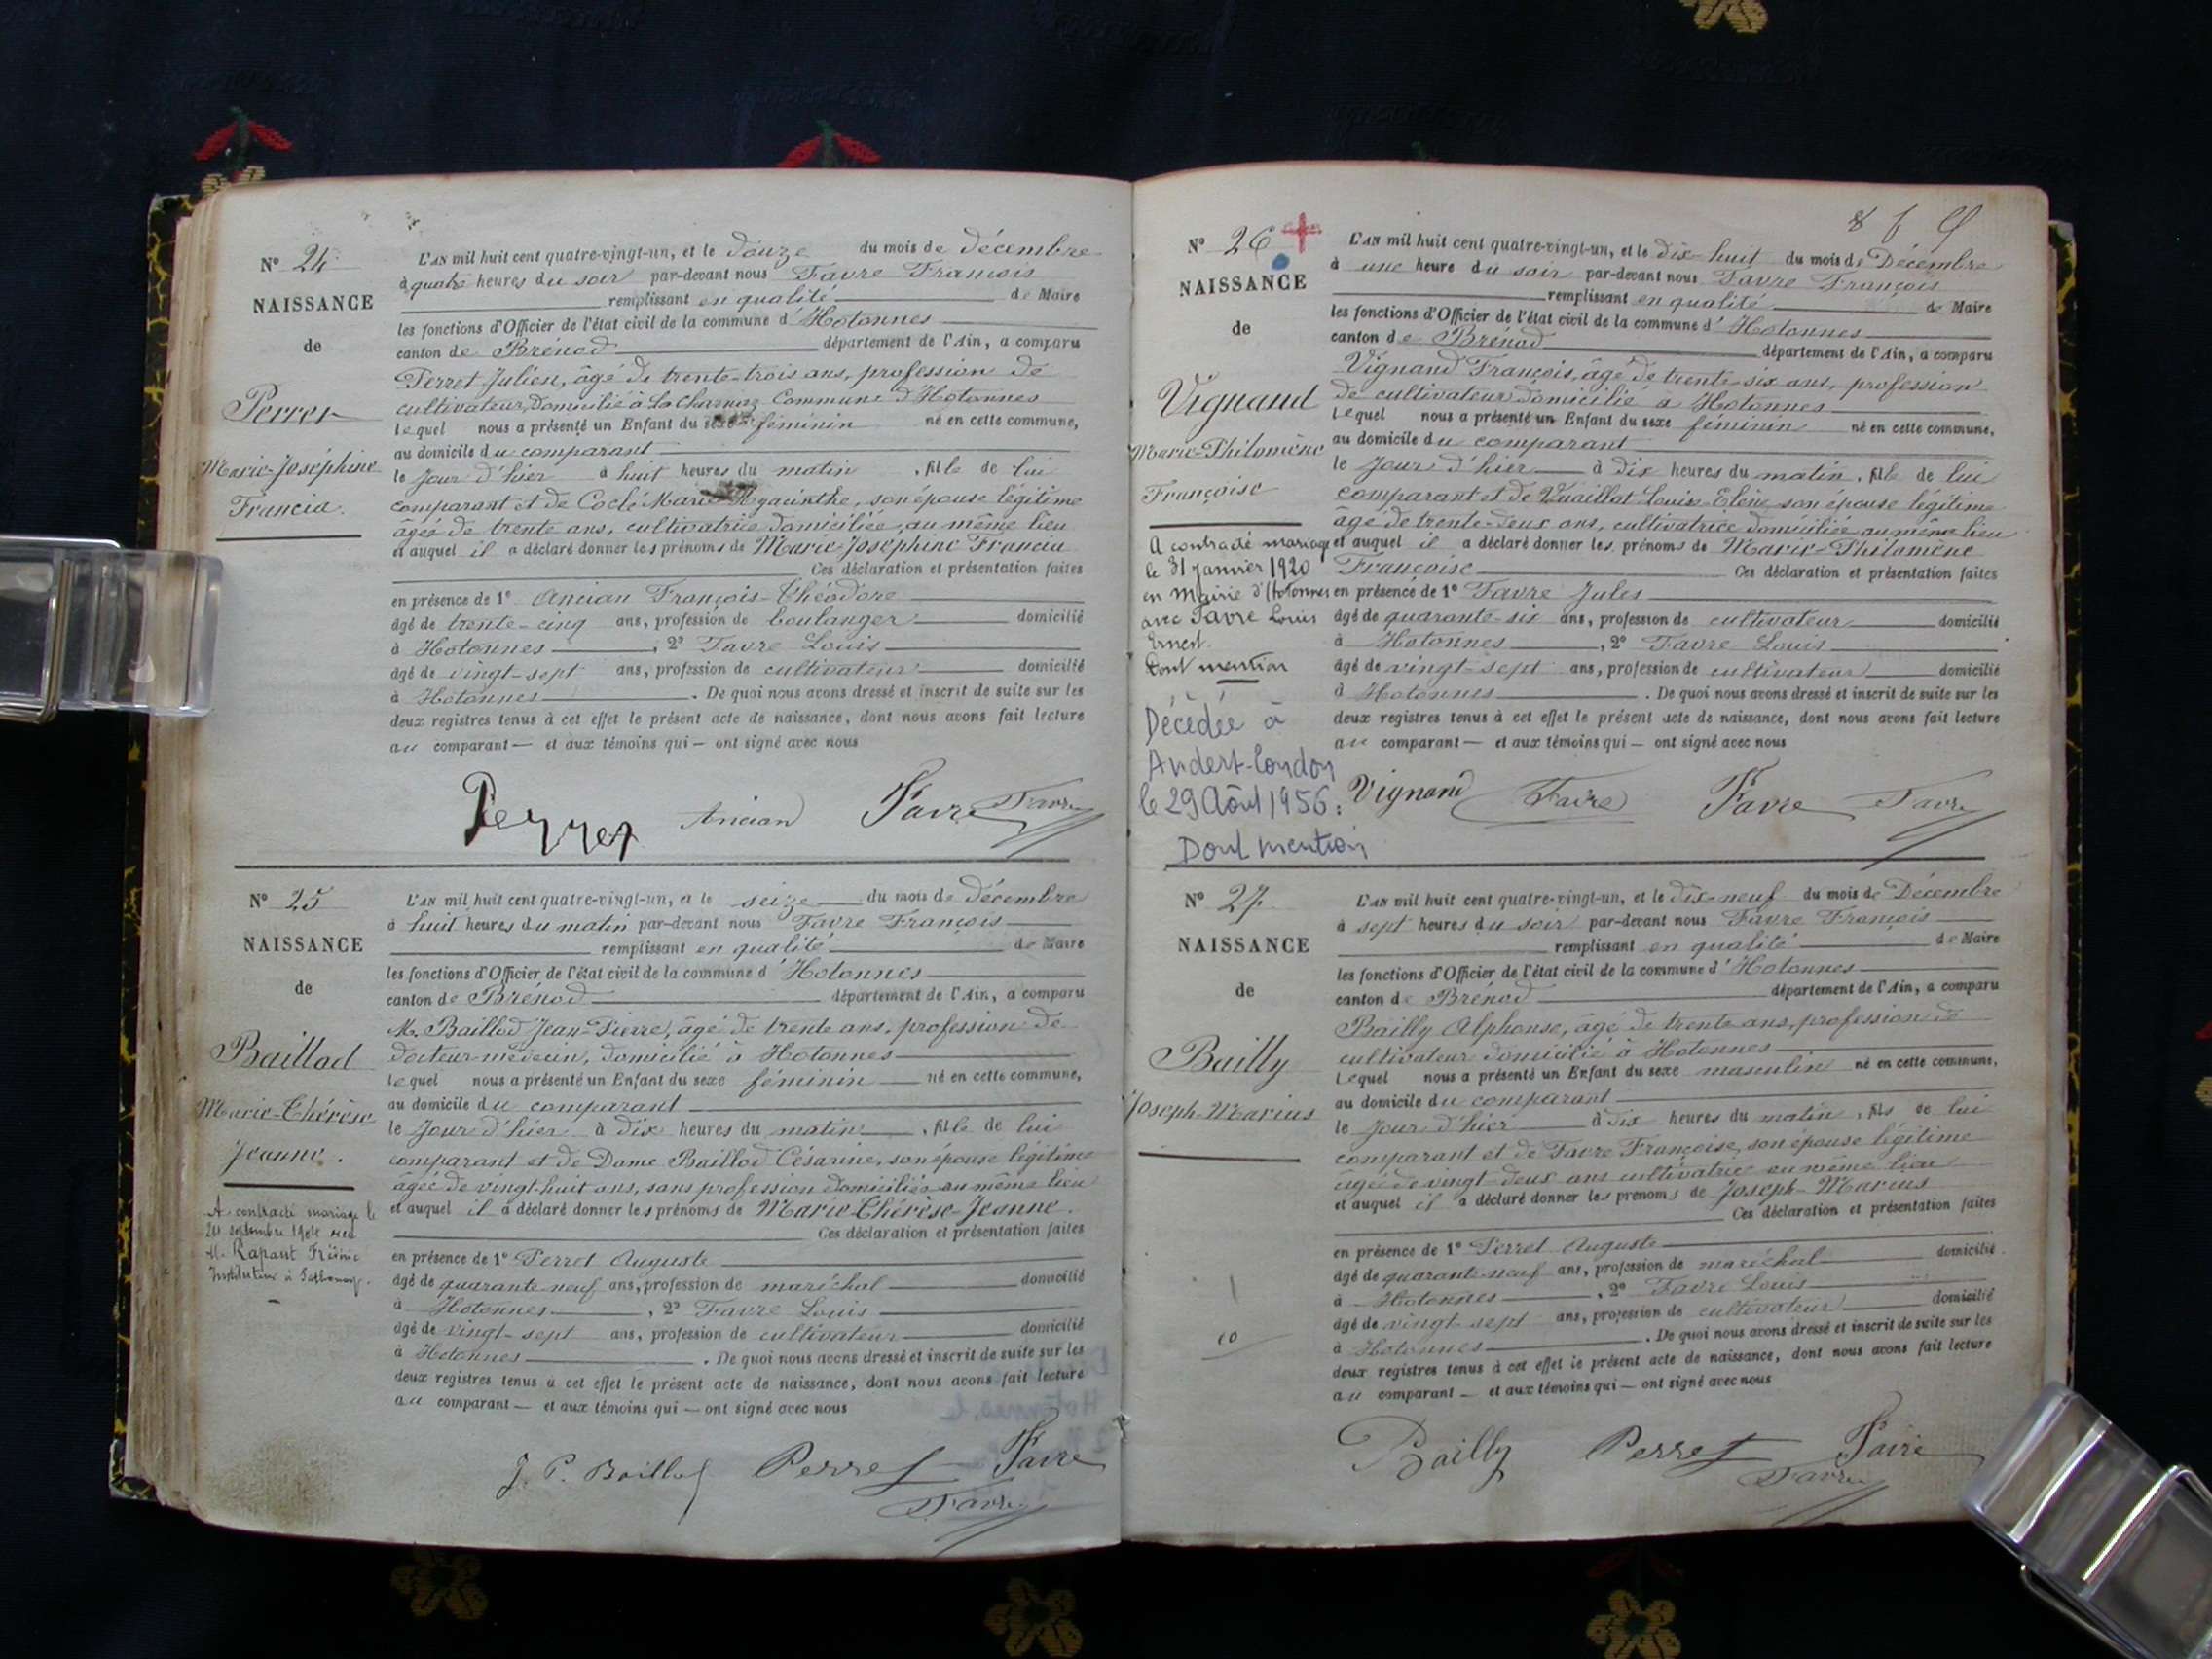 N° 24
NAISSANCE
de
Perret
Marie-Joséphine
Francia.
L'AN mil huit cent quatre-vingt-un, et le douze du mois de décembre
à quatre heures du soir par-devant nous Favre François
remplissant en qualité de Maire
les fonctions d'Officier de l'état civil de la commune d'Hotonnes
canton de Brénod département de l'Ain, a comparu
Perret Julien, âgé de trente-trois ans, profession de
cultivateur, domicilié à La Charnaz Commune d'Hotonnes
lequel nous a présenté un Enfant du sexe féminin né en cette commune,
au domicile du comparant
le jour d'hier à huit heures du matin, fille de lui
comparant et de Coclé Marie Hyacinthe, son épouse légitime
âgée de trente ans, cultivatrice domiciliée au même lieu
et auquel il a déclaré donner les prénoms de Marie-Joséphine Francia
Ces déclaration et présentation faites
en présence de 1° Ancian François-Théodore
âgé de trente-cinq ans, profession de boulanger domicilié
à Hotonnes, 2° Favre Louis
âgé de vingt-sept ans, profession de cultivateur domicilié
à Hotonnes. De quoi nous avons dressé et inscrit de suite sur les
deux registres tenus à cet effet le présent acte de naissance, dont nous avons fait lecture
au comparant — et aux témoins qui — ont signé avec nous
Perret Ancian Favre Favre
N° 25
NAISSANCE
de
Baillod
Marie-Thérèse
Jeanne.
A contracté mariage le
septembre avec
M. Rapaut
L'AN mil huit cent quatre-vingt-un, et le seize du mois de décembre
à huit heures du matin par-devant nous Favre François
remplissant en qualité de Maire
les fonctions d'Officier de l'état civil de la commune d'Hotonnes
canton de Brénod département de l'Ain, a comparu
M. Baillod Jean-Pierre, âgé de trente ans, profession de
docteur-médecin, domicilié à Hotonnes
lequel nous a présenté un Enfant du sexe féminin né en cette commune,
au domicile du comparant
le jour d'hier à dix heures du matin, fille de lui
comparant et de Dame Baillod Césarine, son épouse légitime
âgée de vingt-huit ans, sans profession domiciliée au même lieu
et auquel il a déclaré donner les prénoms de Marie-Thérèse-Jeanne.
Ces déclaration et présentation faites
en présence de 1° Perret Auguste
âgé de quarante-neuf ans, profession de maréchal domicilié
à Hotonnes, 2° Favre Louis
âgé de vingt-sept ans, profession de cultivateur domicilié
à Hotonnes. De quoi nous avons dressé et inscrit de suite sur les
deux registres tenus à cet effet le présent acte de naissance, dont nous avons fait lecture
au comparant — et aux témoins qui — ont signé avec nous
J. P. Baillod Perret Favre
Favre
N° 26
NAISSANCE
de
Vignand
Marie-Philomène
Françoise
A contracté mariage
le 31 janvier 1920
en Mairie d'Hotonnes
avec Favre Louis
Ernest.
Dont mention
Décédée à
Andert-Condon
le 29 Août 1956.
Dont mention
L'AN mil huit cent quatre-vingt-un, et le dix-huit du mois de Décembre
à une heure du soir par-devant nous Favre François
remplissant en qualité de Maire
les fonctions d'Officier de l'état civil de la commune d'Hotonnes
canton de Brénod département de l'Ain, a comparu
Vignand François, âgé de trente-six ans, profession
de cultivateur domicilié à Hotonnes
lequel nous a présenté un Enfant du sexe féminin né en cette commune,
au domicile du comparant
le jour d'hier à dix heures du matin, fille de lui
comparant et de Vuaillat Louise Elène son épouse légitime
âgé de trente-deux ans, cultivatrice domiciliée au même lieu
et auquel il a déclaré donner les prénoms de Marie-Philomène
Françoise Ces déclaration et présentation faites
en présence de 1° Favre Jules
âgé de quarante-six ans, profession de cultivateur domicilié
à Hotonnes, 2° Favre Louis
âgé de vingt-sept ans, profession de cultivateur domicilié
à Hotonnes. De quoi nous avons dressé et inscrit de suite sur les
deux registres tenus à cet effet le présent acte de naissance, dont nous avons fait lecture
au comparant — et aux témoins qui — ont signé avec nous
Vignand Favre Favre Favre
N° 27
NAISSANCE
de
Bailly
Joseph-Marius
L'AN mil huit cent quatre-vingt-un, et le dix-neuf du mois de Décembre
à sept heures du soir par-devant nous Favre François
remplissant en qualité de Maire
les fonctions d'Officier de l'état civil de la commune d'Hotonnes
canton de Brénod département de l'Ain, a comparu
Bailly Alphonse, âgé de trente ans, profession de
cultivateur domicilié à Hotonnes
lequel nous a présenté un Enfant du sexe masculin né en cette commune,
au domicile du comparant
le jour d'hier à dix heures du matin, fils de lui
comparant et de Favre Françoise, son épouse légitime
âgée de vingt-deux ans cultivatrice au même lieu
et auquel il a déclaré donner les prénoms de Joseph-Marius
Ces déclaration et présentation faites
en présence de 1° Perret Auguste
âgé de quarante-neuf ans, profession de maréchal domicilié
à Hotonnes, 2° Favre Louis
âgé de vingt-sept ans, profession de cultivateur domicilié
à Hotonnes. De quoi nous avons dressé et inscrit de suite sur les
deux registres tenus à cet effet le présent acte de naissance, dont nous avons fait lecture
au comparant — et aux témoins qui — ont signé avec nous
Bailly Perret Favre
Favre